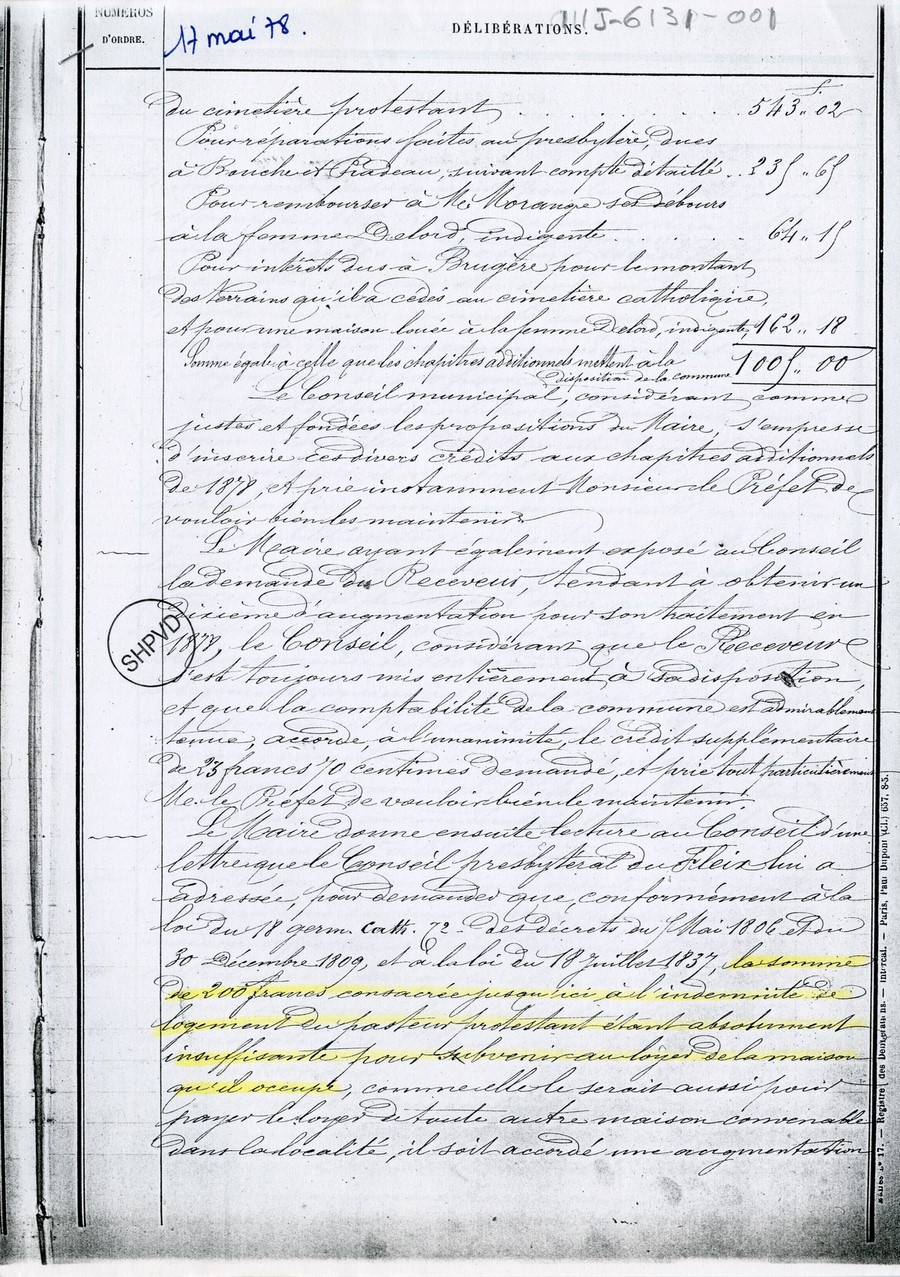 NUMÉROS
D'ORDRE.
17 mai 78.
DÉLIBÉRATIONS.
111J-6131-001
du cimetière protestant . . . . . . . 543 f.. 02
Pour réparations faites au presbytère, dues
à Bouche et Pradeau, suivant compte détaillé . 235 .. 65
Pour rembourser à Mr Morange ses débours
à la femme Delord, indigente . . . . . 64 .. 15
Pour intérêts dus à Brugère pour le montant
des terrains qu'il a cédés au cimetière catholique,
et pour une maison louée à la femme Delord, indigente, 162 .. 18
Somme égale à celle que les chapitres additionnels mettent à la
disposition de la commune 1005 .. 00
Le Conseil municipal, considérant comme
justes et fondées les propositions du Maire, s'empresse
d'inscrire ces divers crédits aux chapitres additionnels
de 1878, et prie instamment Monsieur le Préfet de
vouloir bien les maintenir.
Le Maire ayant également exposé au Conseil
la demande du Receveur, tendant à obtenir un
dixième d'augmentation pour son traitement en
1879, le Conseil, considérant que le Receveur
s'est toujours mis entièrement à sa disposition,
et que la comptabilité de la commune est admirablement
tenue, accorde, à l'unanimité, le crédit supplémentaire
de 23 francs 70 centimes demandé, et prie tout particulièrement
Mr le Préfet de vouloir bien le maintenir.
Le Maire donne ensuite lecture au Conseil d'une
lettre que le Conseil presbytéral du Fleix lui a
adressée, pour demander que, conformément à la
loi du 18 germ. cath. 72 des décrets du 5 Mai 1806 et du
30 Décembre 1809, et à la loi du 18 Juillet 1837, la somme
de 200 francs consacrée jusqu'ici à l'indemnité de
logement du pasteur protestant étant absolument
insuffisante pour subvenir au loyer de la maison
qu'il occupe, comme elle le serait aussi pour
payer le loyer de toute autre maison convenable
dans la localité, il soit accordé une augmentation
SHPVD
N° 17. — Registre des Délibérations. — Intercal. — Paris, Paul Dupont (Cl.) 657, 8-5.